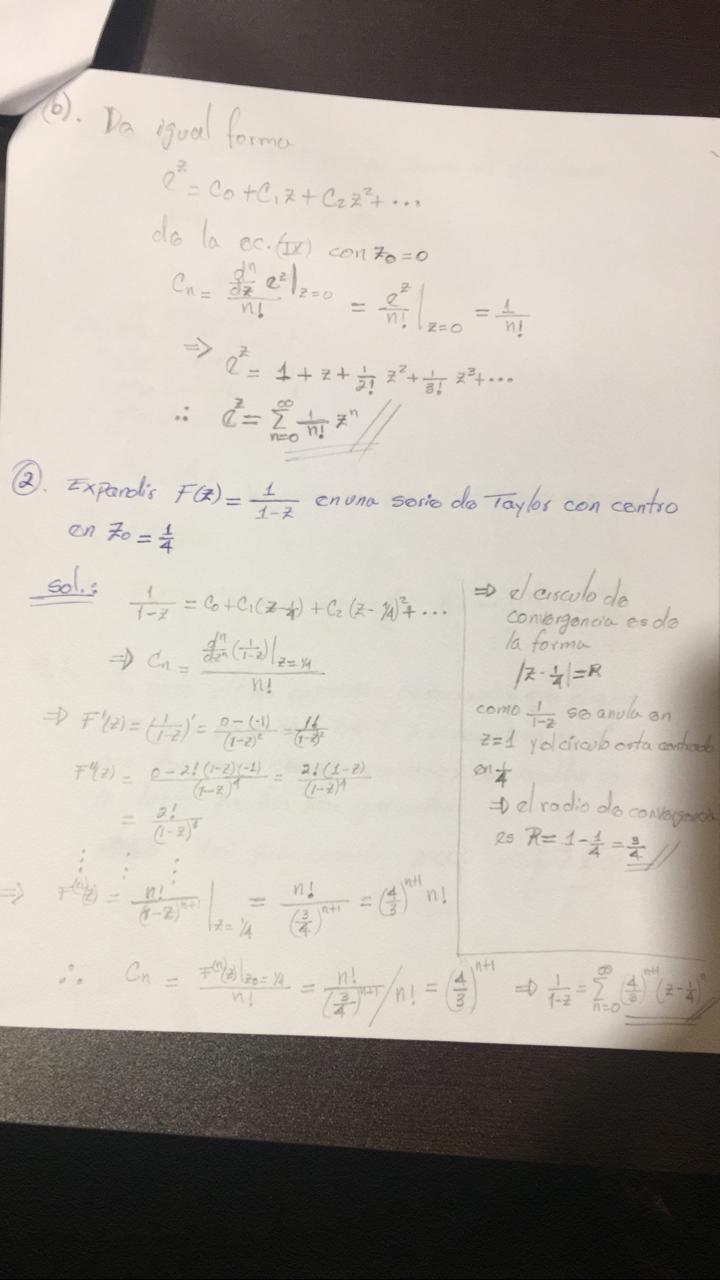 (b). De igual forma
e^z = C0 + C1 z + C2 z^2 + ...
de la ec. (IX) con z0 = 0
Cn = (d^n/dz e^z|z=0)/n! = e^z/n! |z=0 = 1/n!
⇒ e^z = 1 + z + 1/2! z^2 + 1/3! z^3 + ...
∴ e^z = Σ_{n=0}^{∞} 1/n! z^n //
②. Expandir F(z) = 1/(1-z) en una serie de Taylor con centro
en z0 = 1/4
sol.:
1/(1-z) = C0 + C1(z-1/4) + C2(z-1/4)^2 + ...
⇒ Cn = (d^n/dz^n (1/(1-z))|z=1/4)/n!
⇒ F'(z) = (1/(1-z))' = (0-(-1))/(1-z)^2 = 1!/(1-z)^2
F''(z) = (0-2!(1-z)(-1))/(1-z)^4 = 2!(1-z)/(1-z)^4
= 2!/(1-z)^3
⋮ ⋮ ⋮
⇒ F^(n)(z) = n!/(1-z)^{n+1} |z=1/4 = n!/(3/4)^{n+1} = (4/3)^{n+1} n!
⇒ el circulo de
convergencia es de
la forma
|z-1/4| = R
como 1/(1-z) se anula en
z=1 y el círculo esta centrado
en 1/4
⇒ el radio de convergencia
es R = 1-1/4 = 3/4 //
∴ Cn = F^(n)(z)|z0=1/4 / n! = n!/(3/4)^{n+1} / n! = (4/3)^{n+1} ⇒ 1/(1-z) = Σ_{n=0}^{∞} (4/3)^{n+1} (z-1/4)^n //